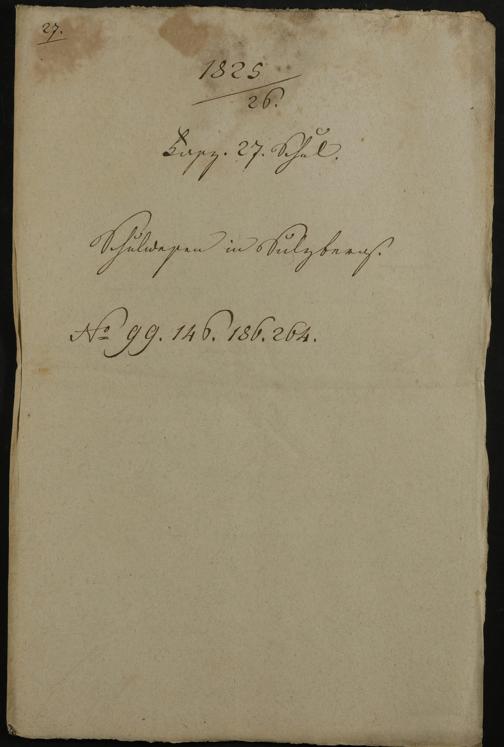 27.
1825
26.
Fasz. 27. Schul.
Schulwesen in Sulzberg.
No 99. 146. 186. 264.